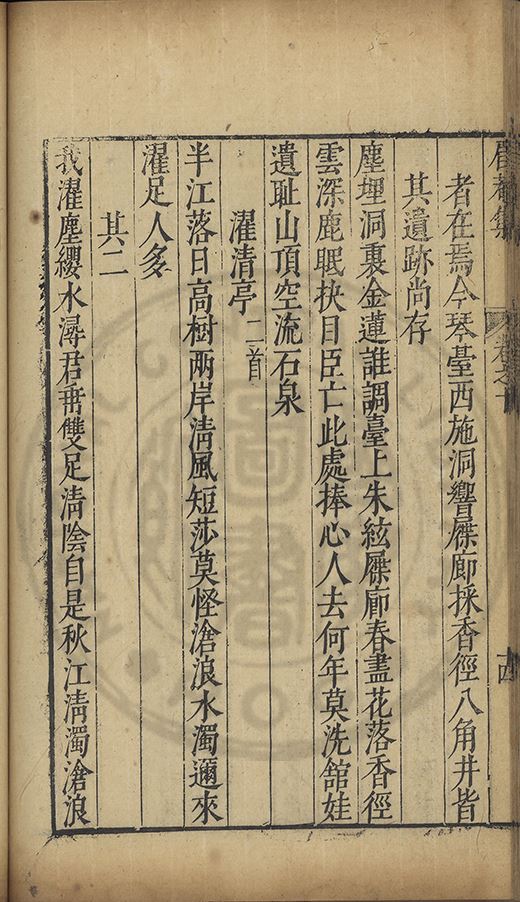 者在焉今琴臺西施洞響屧廊採香徑八角井皆
其遺跡尚存
塵埋洞裏金蓮誰調臺上朱絃屧廊春盡花落香徑
雲深鹿眠抉目臣亡此處捧心人去何年莫洗舘娃
遺耻山頂空流石泉
濯清亭二首
半江落日高樹兩岸清風短莎莫怪滄浪水濁邇來
濯足人多
其二
我濯塵纓水潯君垂雙足清陰自是秋江清濁滄浪